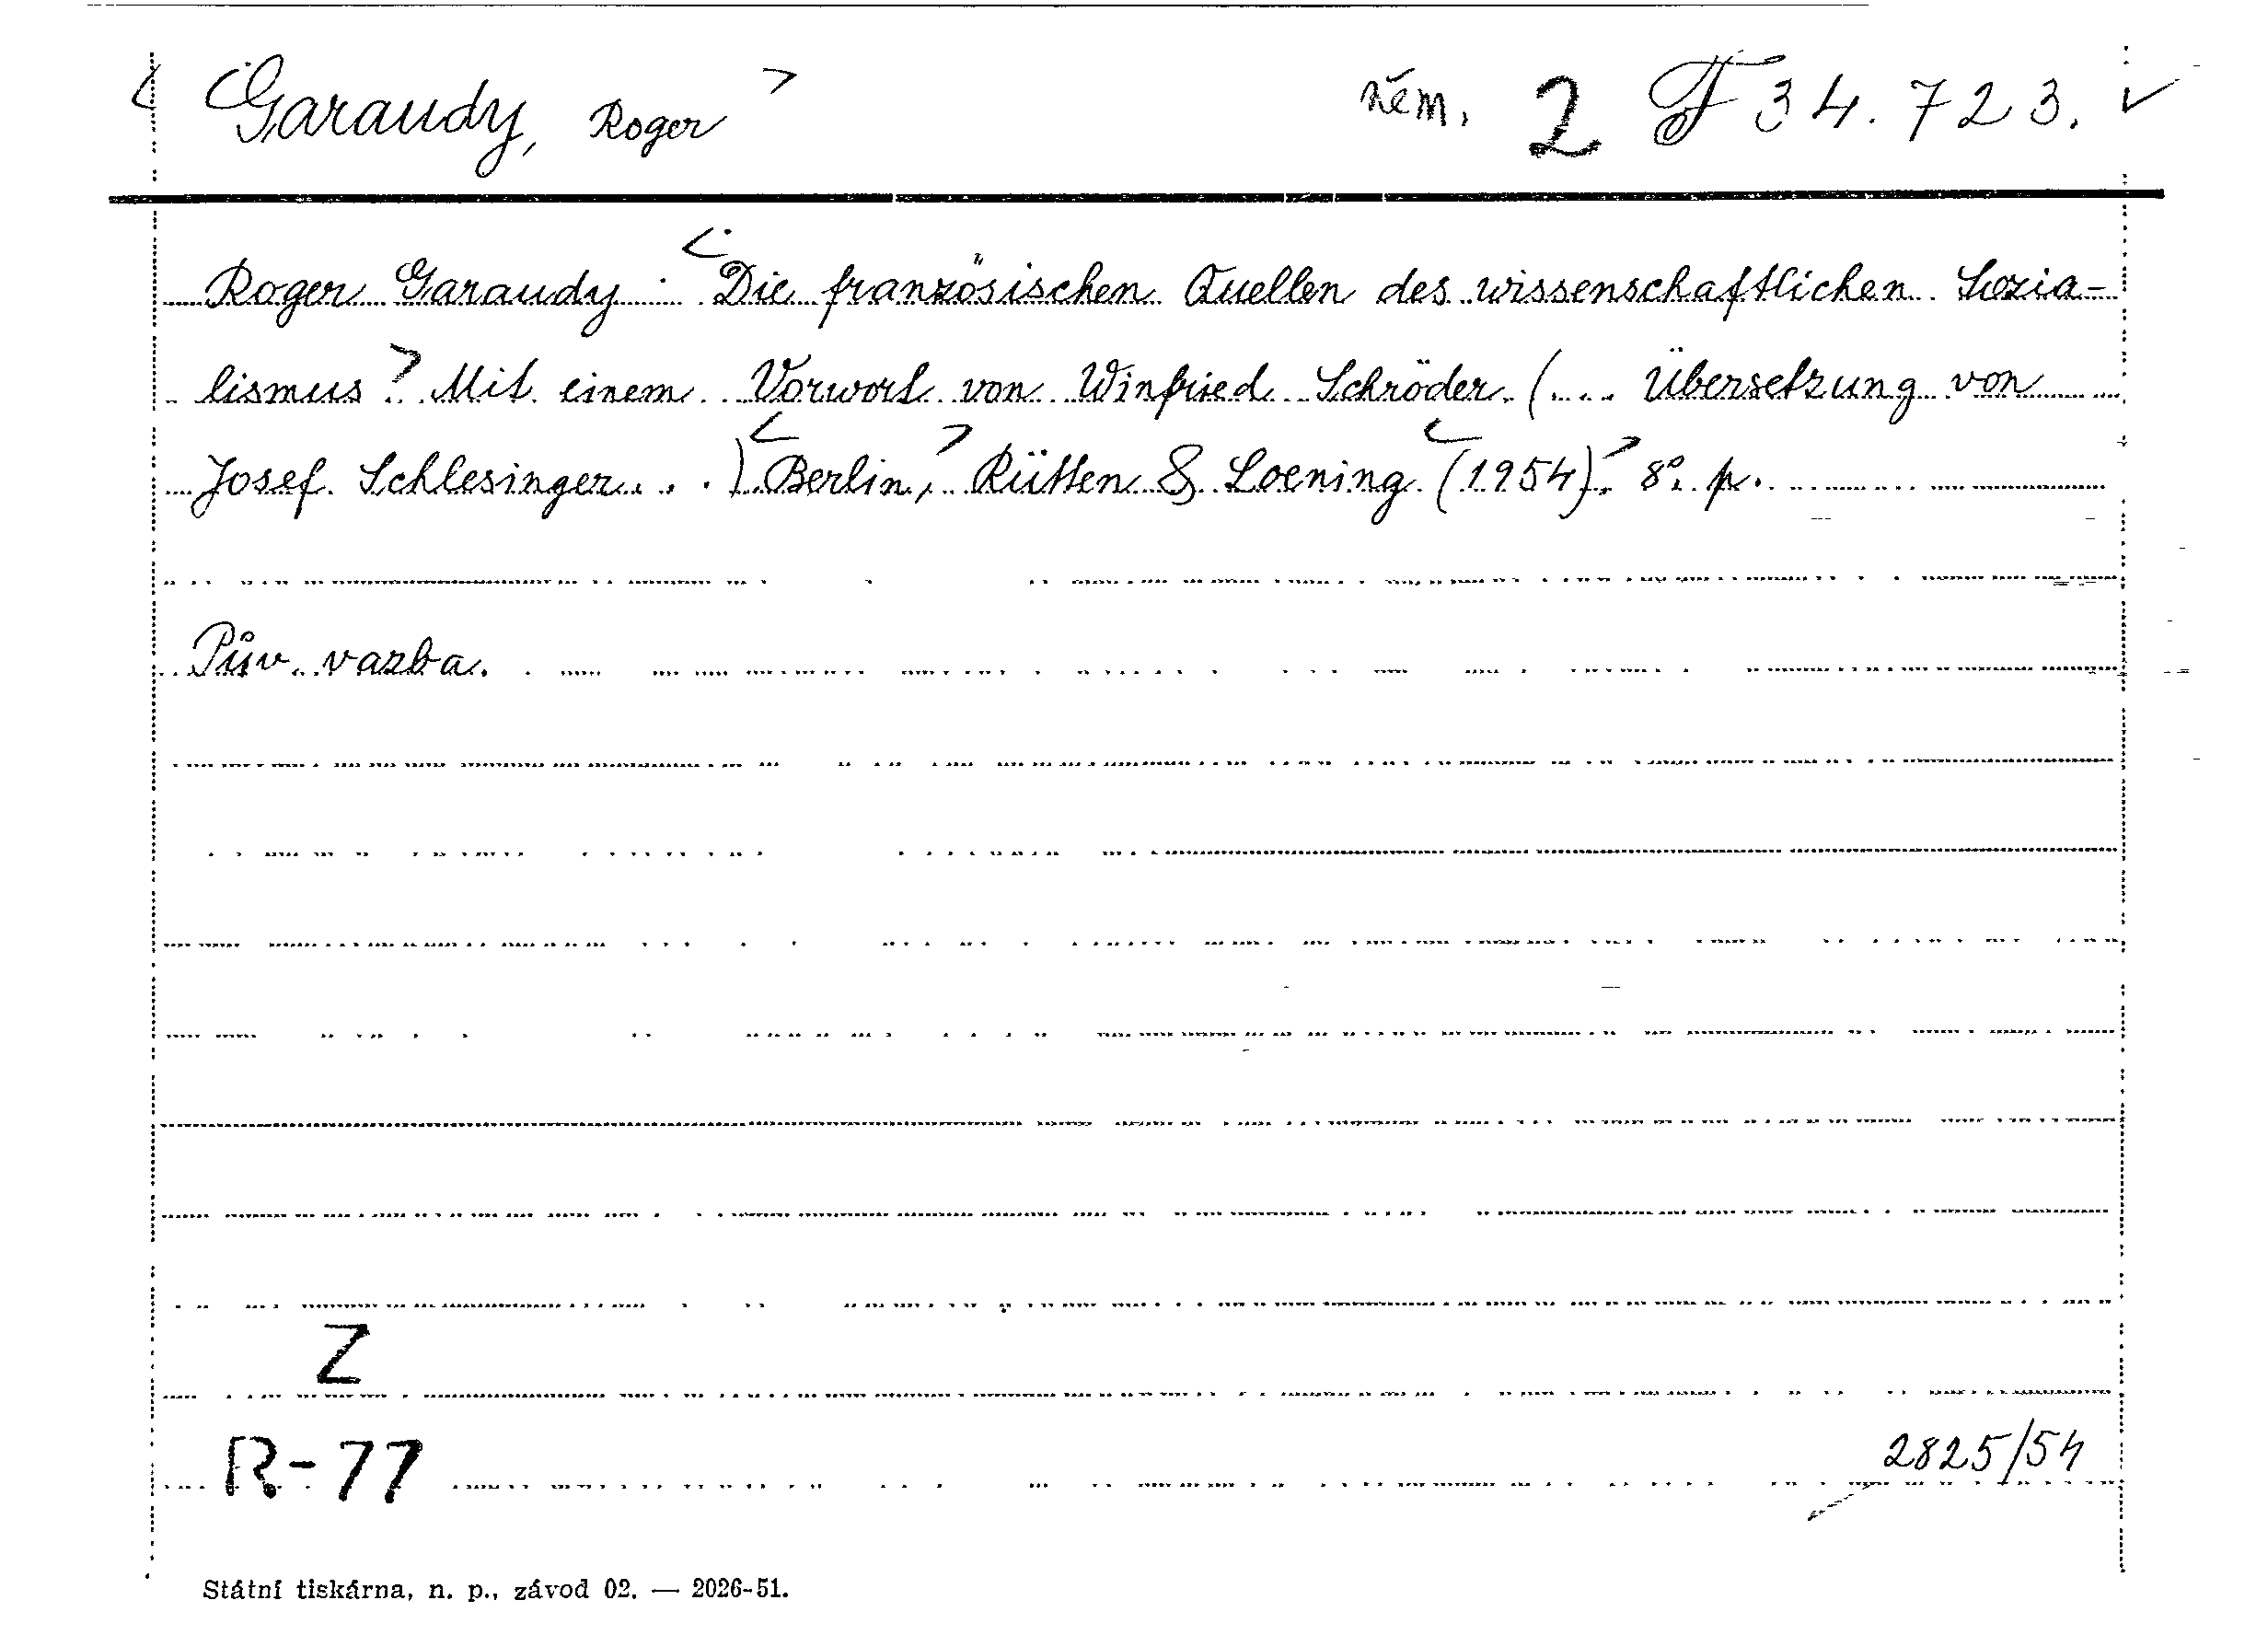 < Garaudy, Roger > něm. 2 F 34.723. ✓
Roger Garaudy : <Die französischen Quellen des wissenschaftlichen Sozia-
lismus.> Mit einem Vorwort von Winfried Schröder. (... Übersetzung von
Josef Schlesinger...) <Berlin,> Rütten & Loening <(1954).> 8°. p.
Pův. vazba.
Z
R-77 2825/54
Státní tiskárna, n. p., závod 02. — 2026-51.